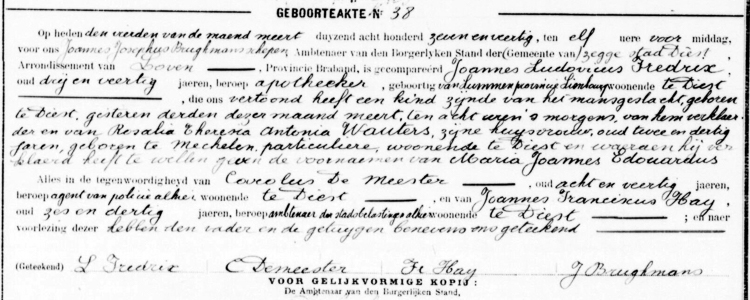 GEBOORTEAKTE Nr 38
Op heden den vierden van de maend meert duyzend acht honderd zeven en veertig, ten elf uere voor middag,
voor ons Joannes Josephus Brughmans schepen Ambtenaer van den Borgerlyken Stand der (Gemeente van) zegge stad Diest,
Arrondissement van Loven, Provincie Braband, is gecompareërd Joannes Ludovicus Fredrix,
oud drij en veertig jaeren, beroep apothecker, geboortig van Lummen provincie Limburg woonende te Diest
, die ons vertoond heeft een kind zijnde van het mansgeslacht, geboren
te Diest, gisteren derden dezer maand meert, ten acht uren 's morgens, van hem verklaer-
der en van Rosalia Theresia Antonia Wauters, zijne huysvrouw, oud twee en dertig
jaren, geboren te Mechelen, particuliere, woonende te Diest en waeraen hij ver
klaerd heeft te willen geven de voornamen van Maria Joannes Edouardus
Alles in de tegenwoordigheyd van Carolus De Meester, oud acht en veertig jaeren,
beroep agent van policie alhier woonende te Diest, en van Joannes Franciscus Hay,
oud zes en dertig jaeren, beroep ambtenaer der stadsbelastingen alhier woonende te Diest; en naer
voorlezing dezer hebben den vader en de getuygen benevens ons geteekend
(Geteekend) L Fredrix C Demeester Fr Hay J Brughmans
VOOR GELIJKVORMIGE KOPIJ:
De Ambtenaar van den Borgerlijken Stand,